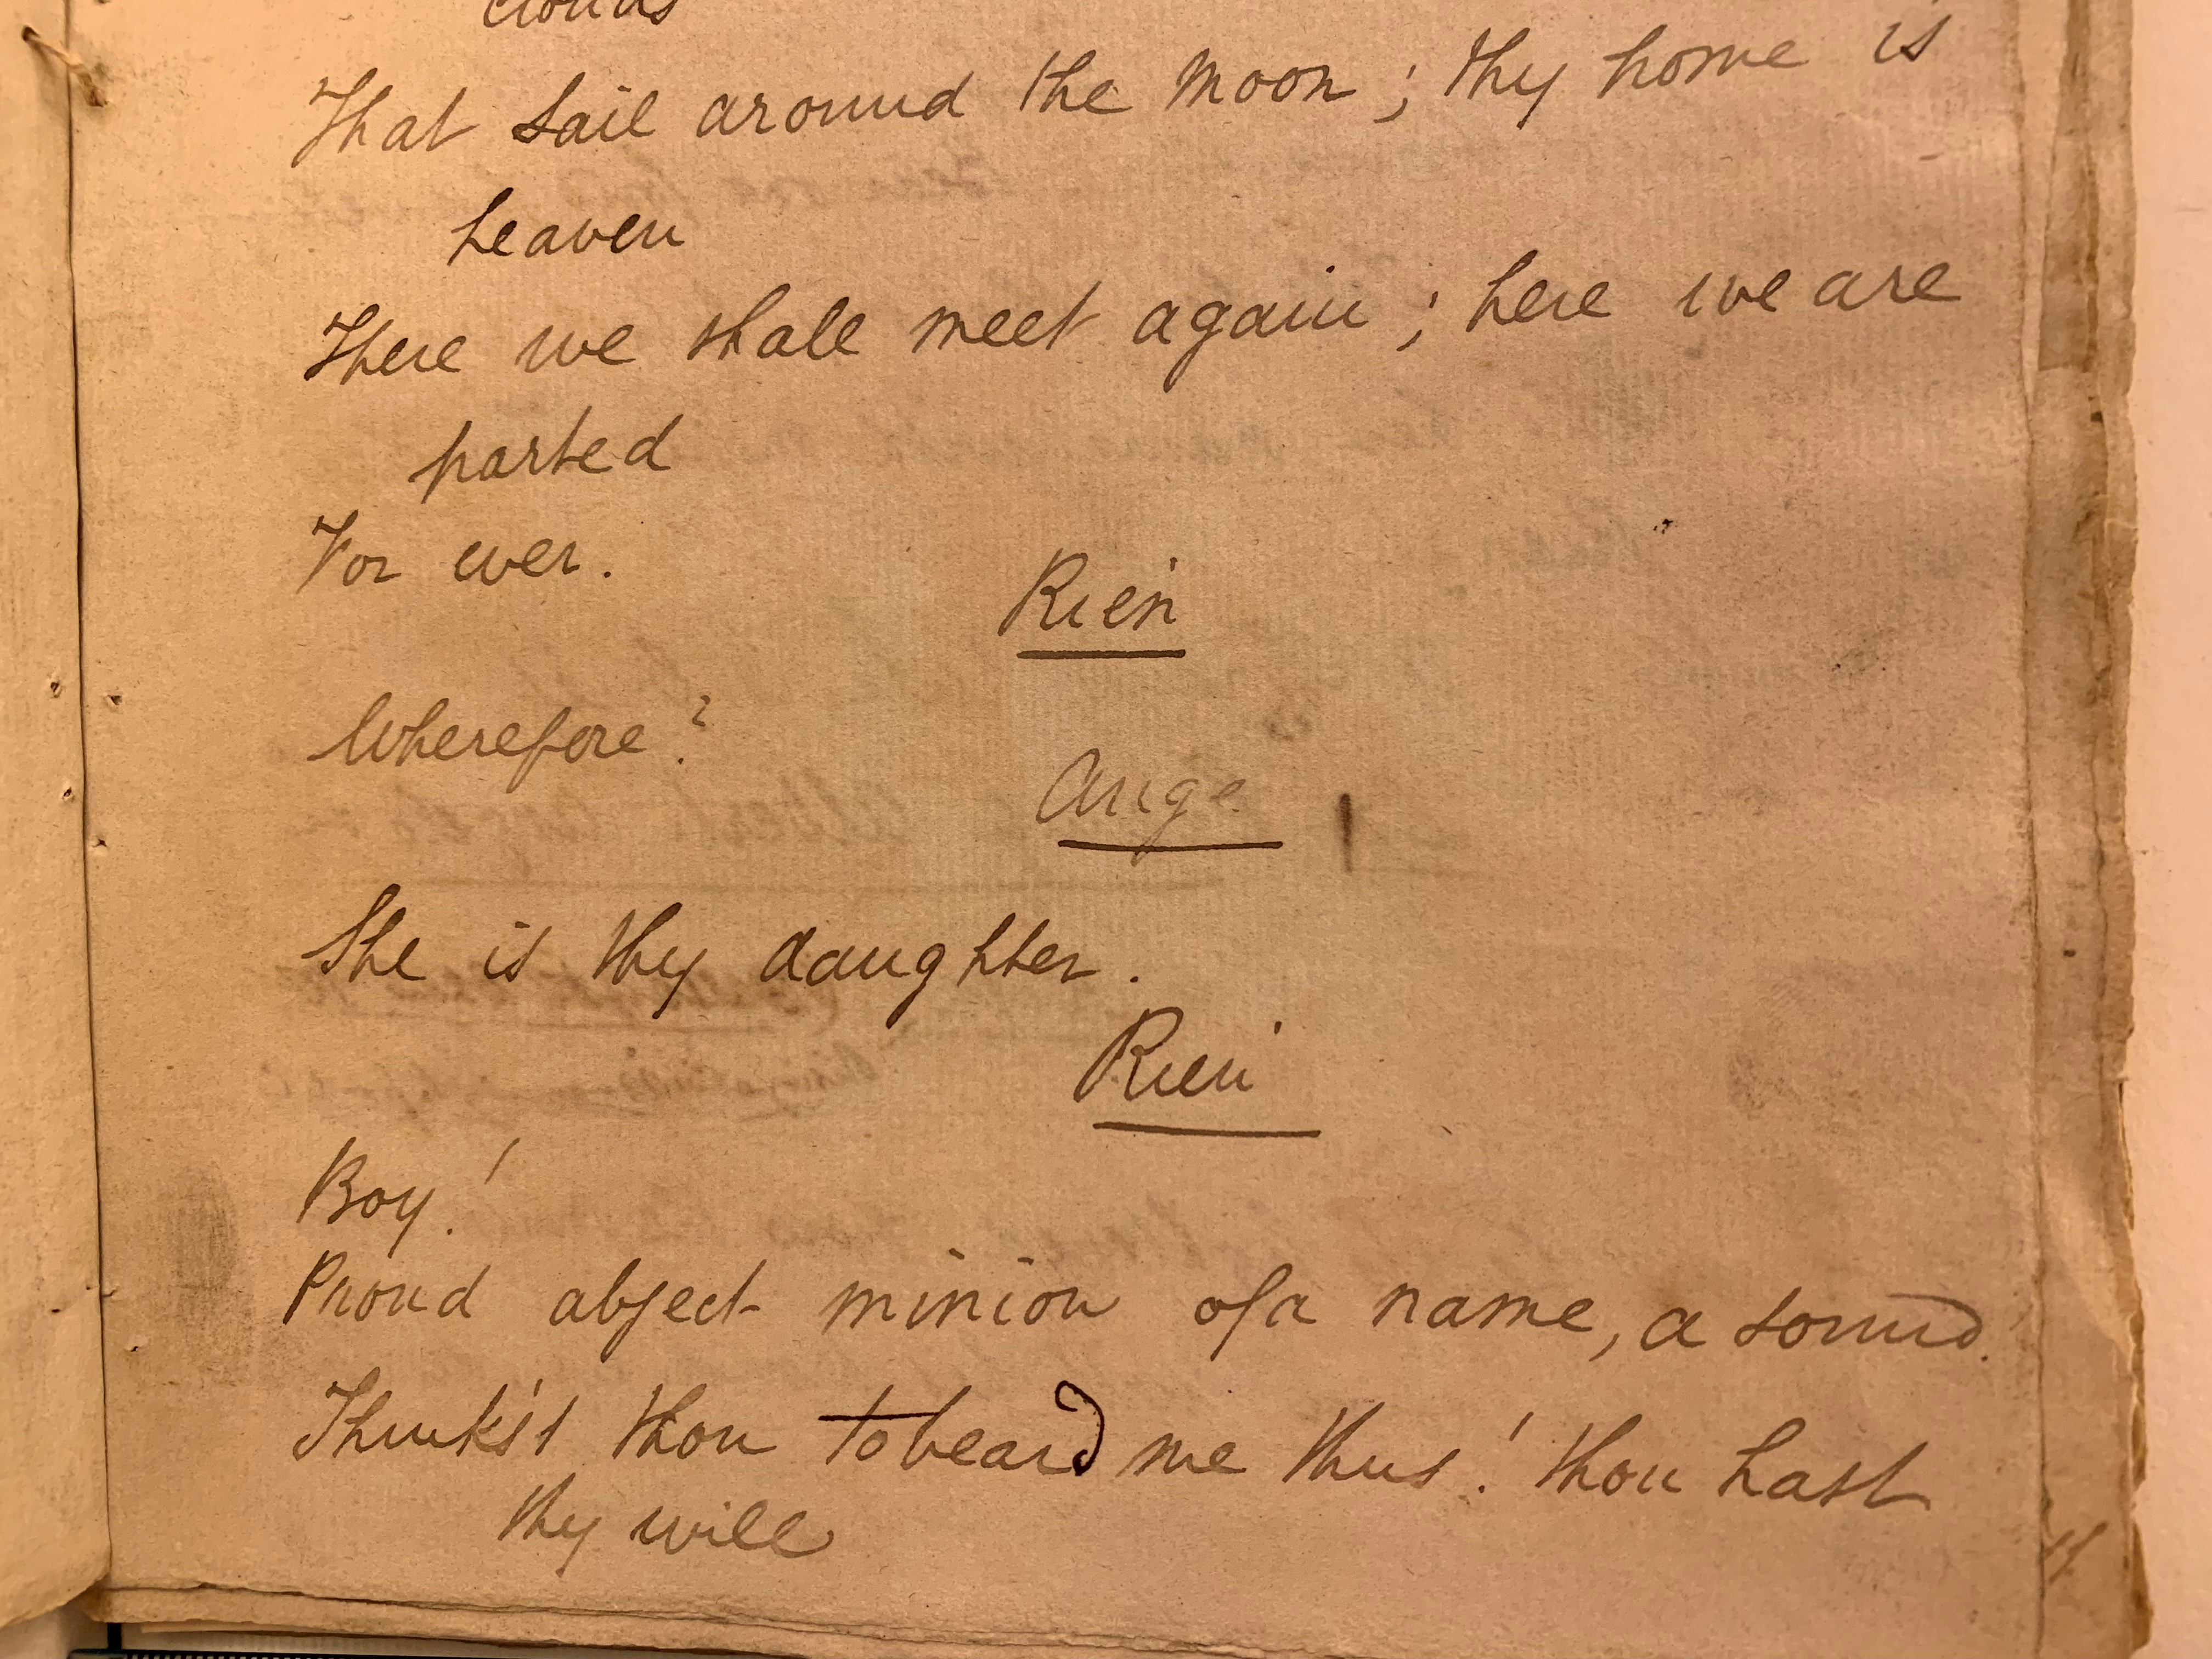 clouds
That sail around the moon; thy home is
heaven
There we shall meet again; here we are
parted
For ever.
Rien
Wherefore?
Ange
She is thy daughter.
Rien
Boy!
Proud abject minion of a name, a sound.
Think'st thou to beard me thus! thou hast
thy will